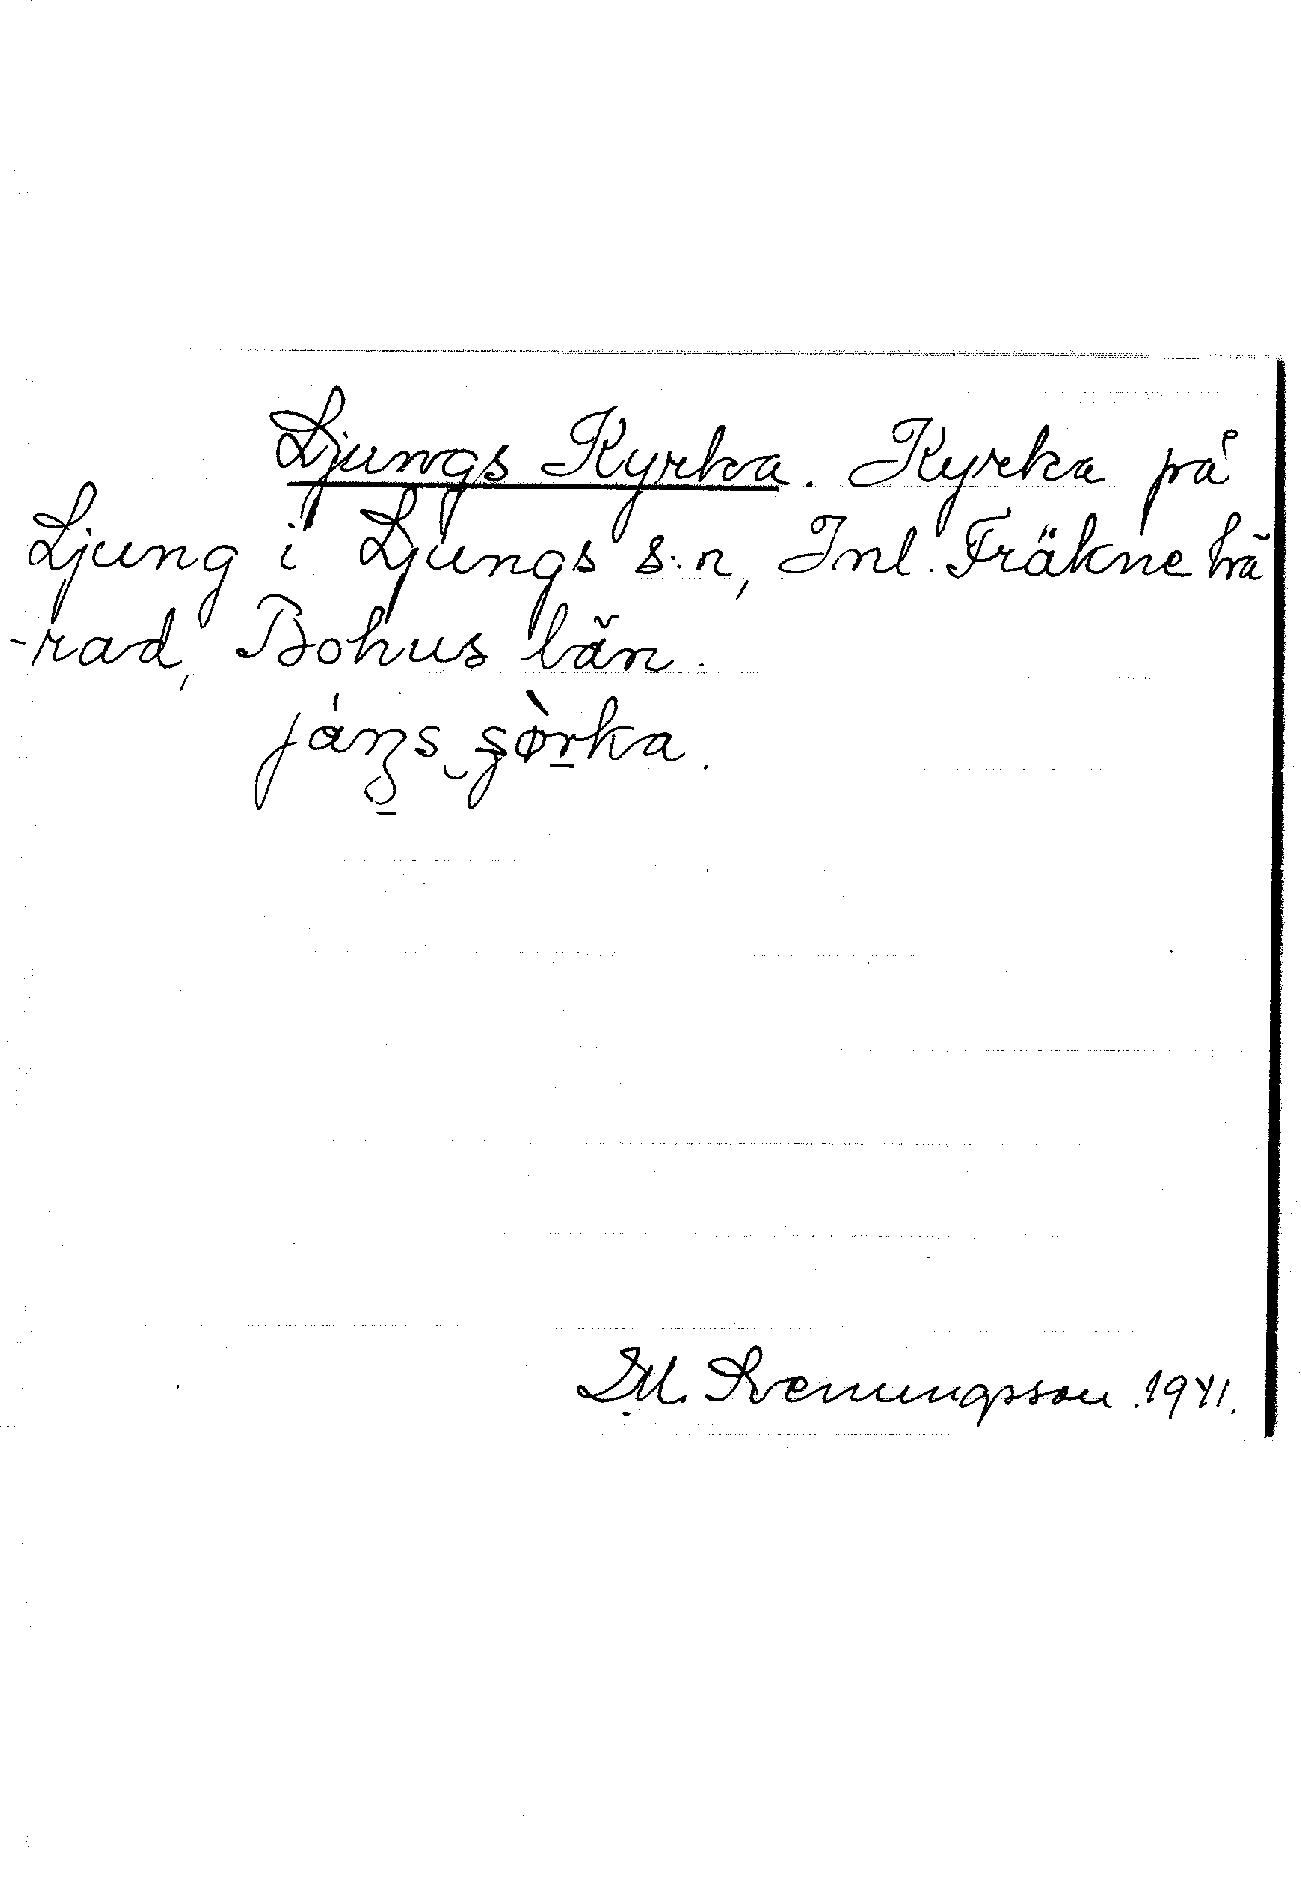 Ljungs Kyrka. Kyrka på
Ljung i Ljungs s:n, Inl. Fräkne hä
-rad, Bohus län.
Svenungsson 1941.